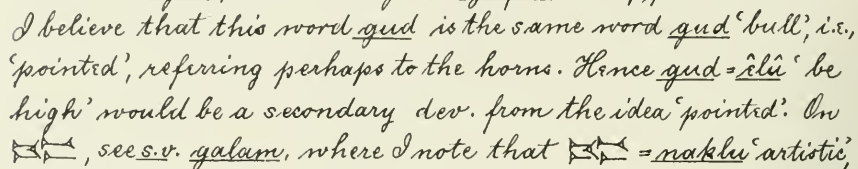 I believe that this word gud is the same word gud 'bull', i.e.,
'pointed', referring perhaps to the horns. Hence gud = êlû 'be
high' would be a secondary dev. from the idea 'pointed'. On
, see s.v. galam, where I note that = naklu 'artistic',